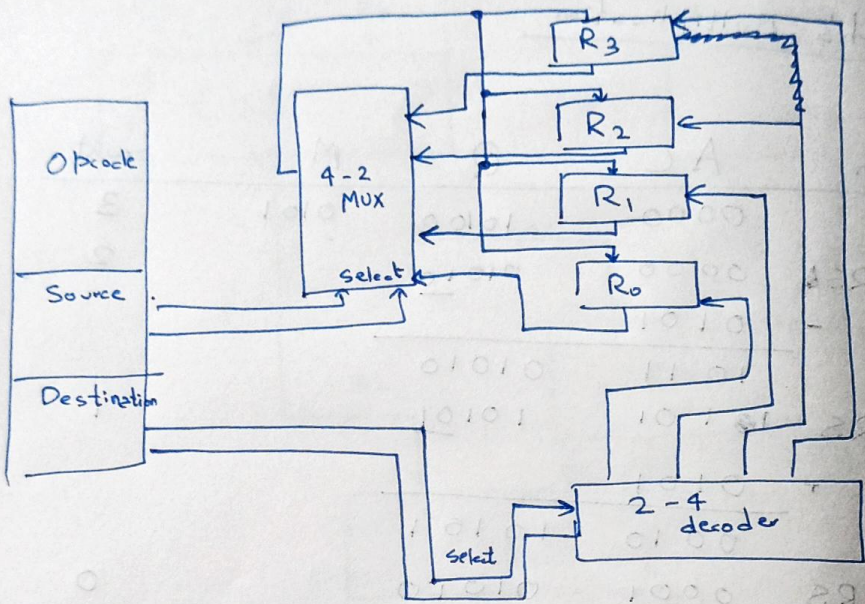 Opcode
Source
Destination
4-2
MUX
select
R3
R2
R1
R0
2-4
decoder
select